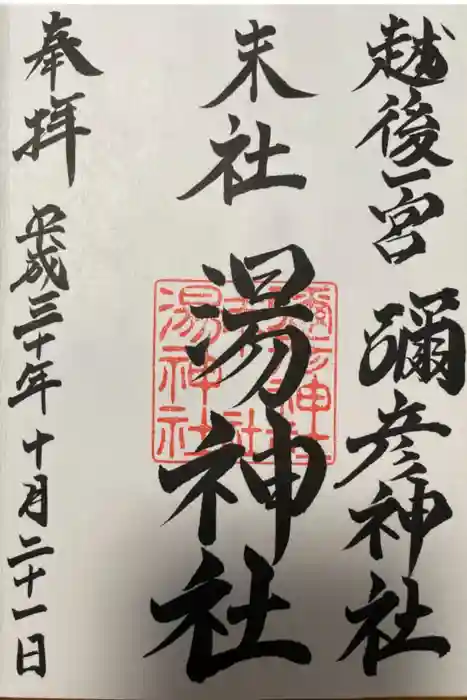 越後一宮 彌彦神社
末社 湯神社
奉拝 平成三十年十月二十一日
彌彦神社
末社
湯神社